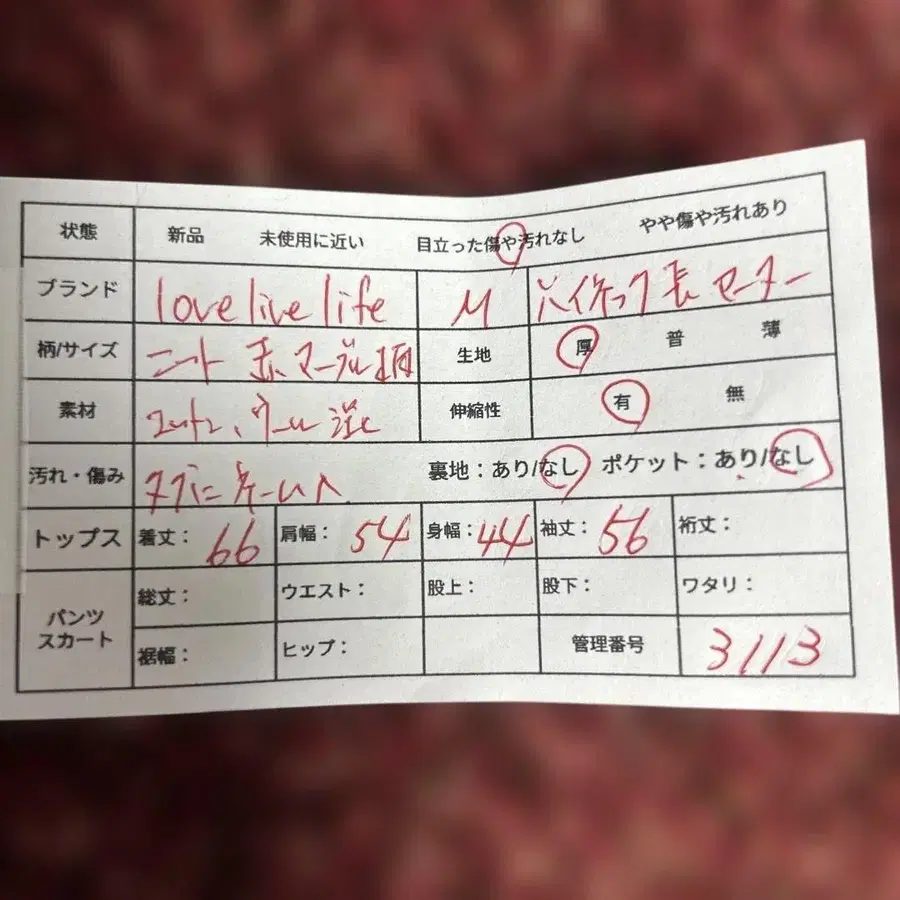 状態 新品 未使用に近い 目立った傷や汚れなし やや傷や汚れあり
ブランド love live life M ハイネック 長 セーター
柄/サイズ ニット 赤、マーブル柄 生地 厚 普 薄
素材 コットン、ウール 混 伸縮性 有 無
汚れ・傷み タグに ネーム入 裏地：あり/なし ポケット：あり/なし
トップス 着丈：66 肩幅：54 身幅：44 袖丈：56 裄丈：
パンツ スカート 総丈： ウエスト： 股上： 股下： ワタリ：
裾幅： ヒップ： 管理番号 3113